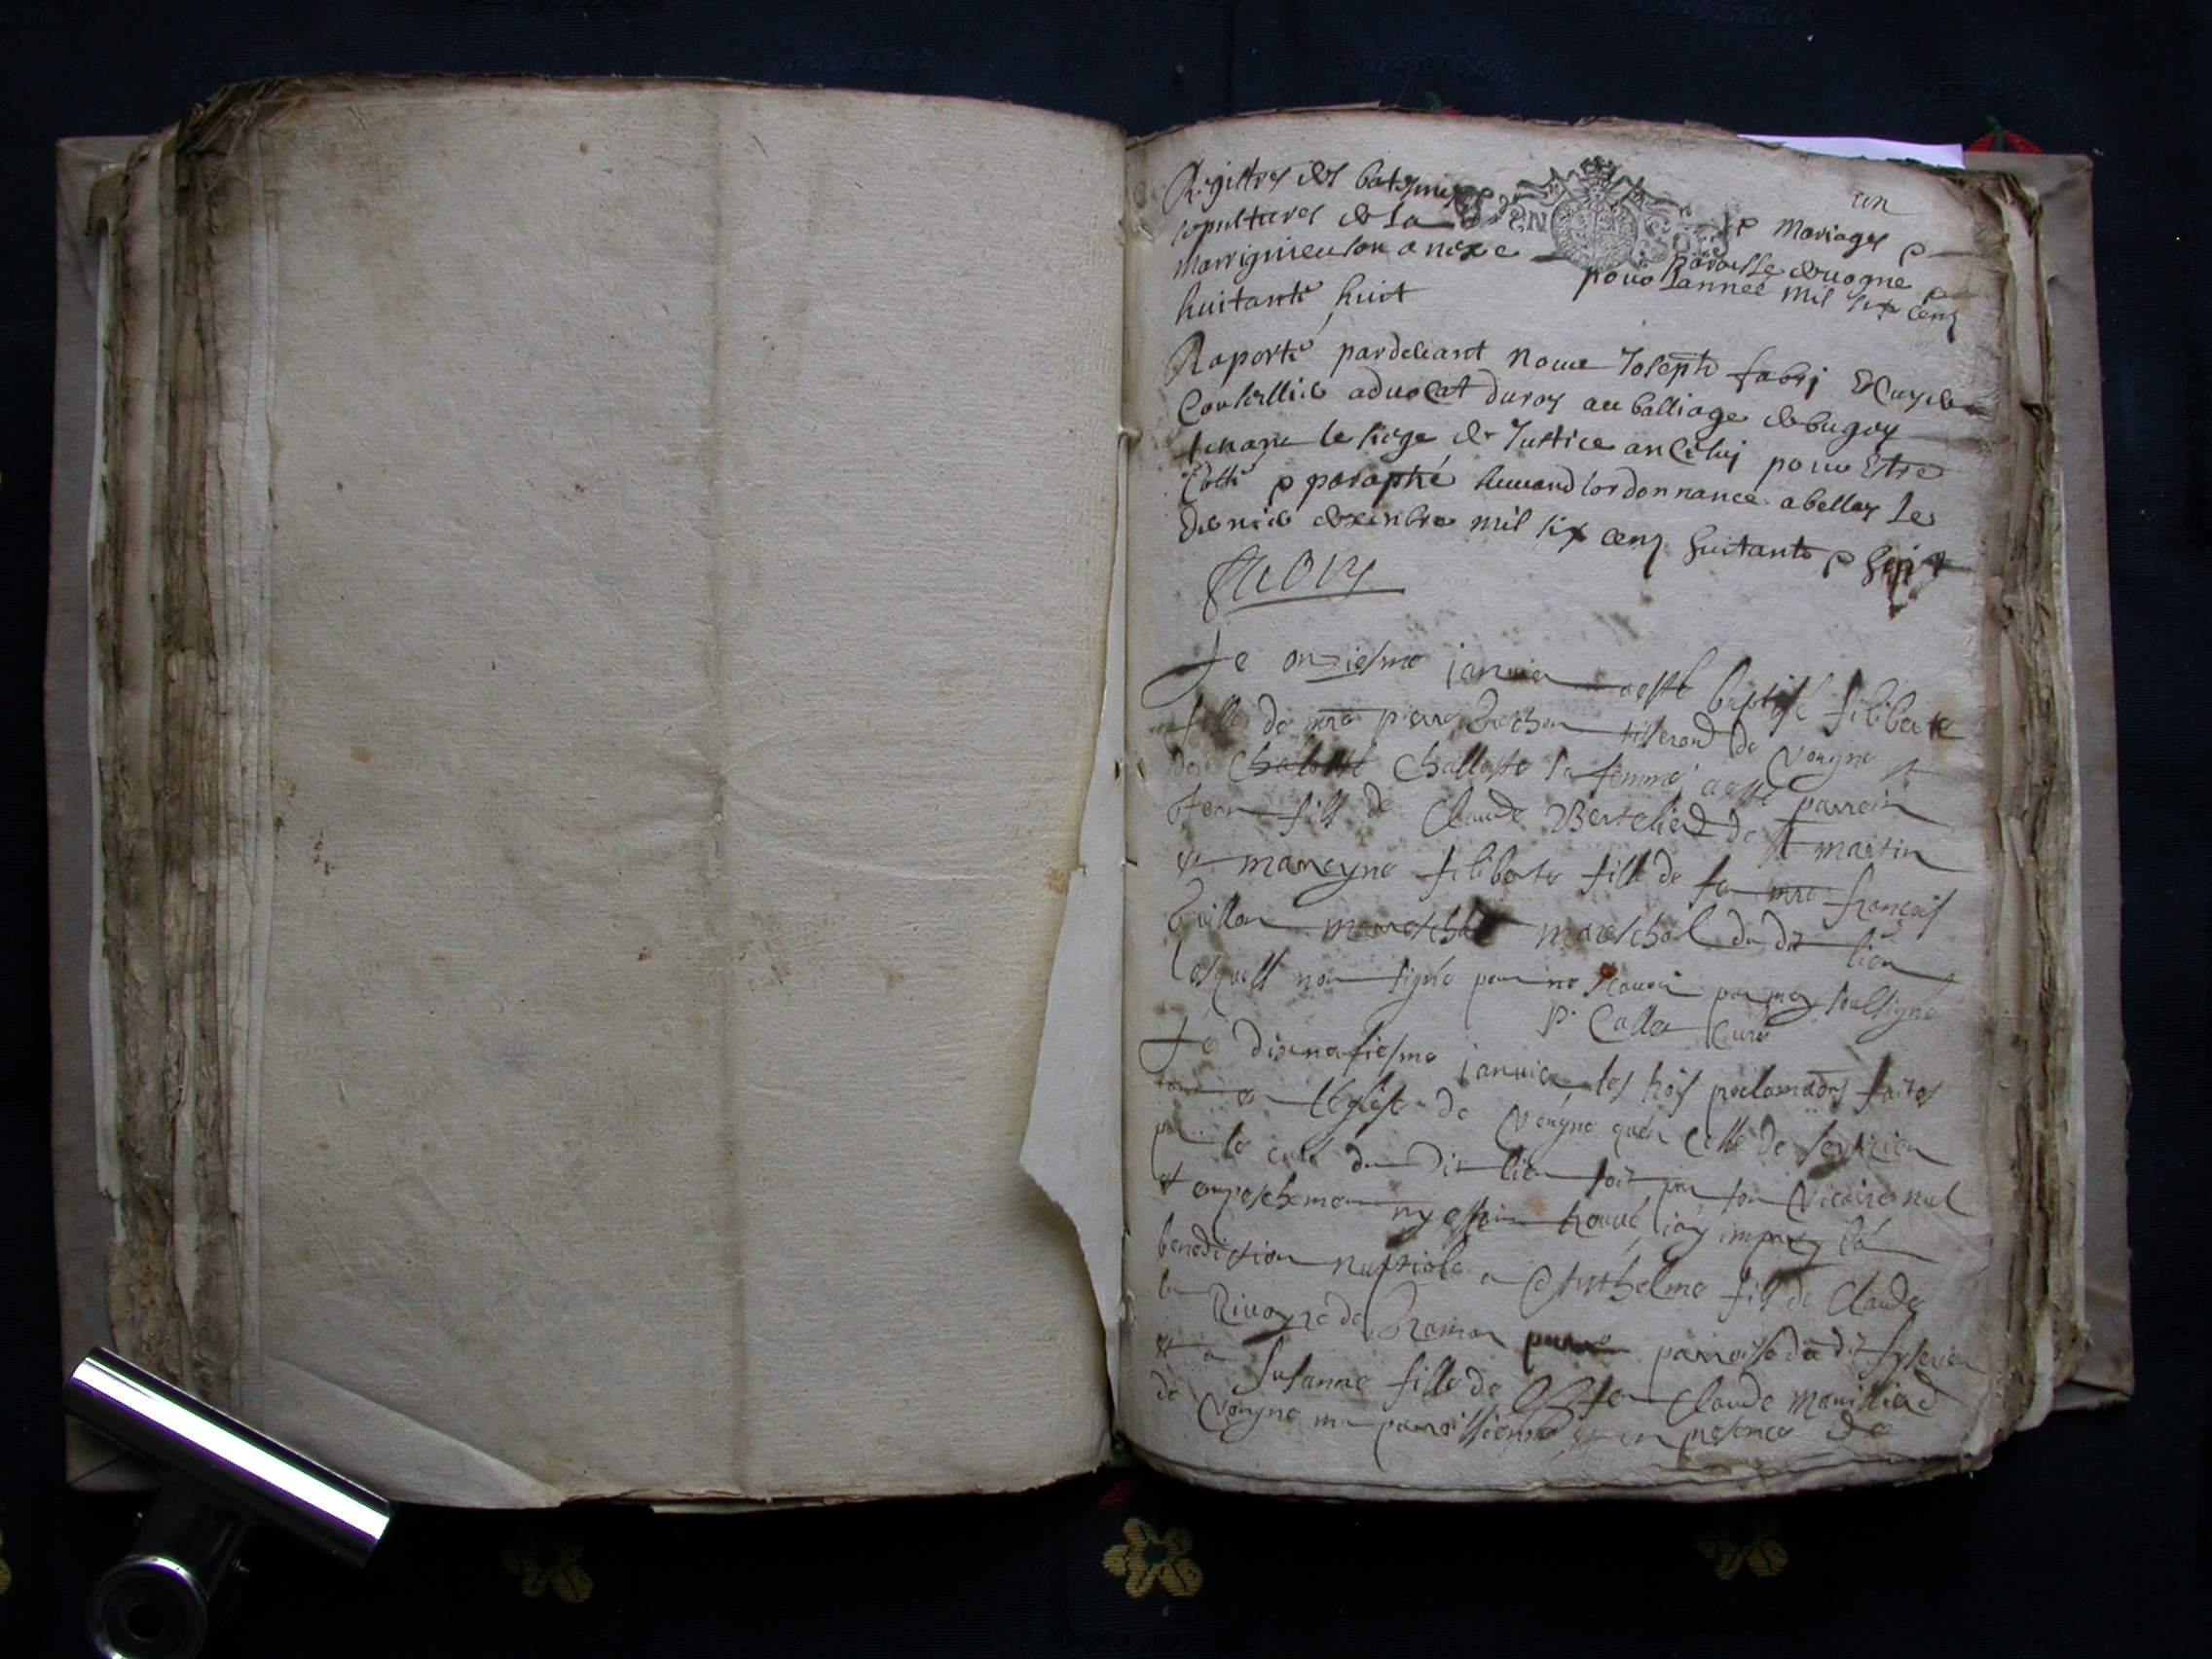 un
Registres des batesmes Mariages &
sepultures de la paroisse de uogne &
Marrignieu son anexe pour lannee mil six cens
huitante huit
Raporté pardeuant nous Joseph fabri Escuyer
Conseillier aduocat du roy au balliage de bugey
tenant le siege de Justice en Celuj pour Estre
Cotté & paraphé suiuand lordonnance a belley Le
dernier decembre mil six cens huitante & sept
Le onziesme januier a esté baptisé filiberte
fille de mre pierre tisserand de Vongne et
de Challotte sa femme a esté parrein
fils de Claude Berthelier de St martin
et mareyne filiberte fille de feu mre françois
mareschal du dit lieu
lesquels non signé pour ne scauoir par moy soubsigné
P. Caller Curé
Le dixneufiesme januier les trois proclamaons faites
tant en l'Eglise de Vongne quen celle de
par le curé du dit lieu soit par son Vicaire nul
empeschement ny estant trouué j'ay imparty la
benediction nuptiale a Anthelme fils de Claude
de parroisse du dit
et a Susanne fille de feu Claude
de Vongne ma parroissienne et en presence de